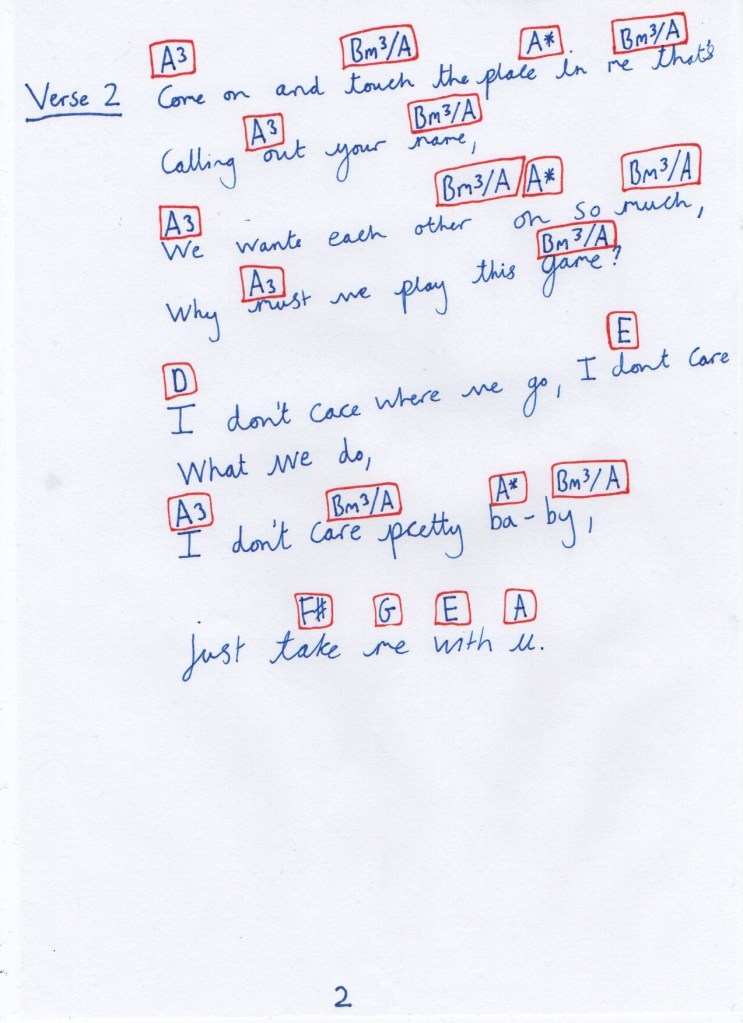 A3 Bm³/A A* Bm³/A
Verse 2 Come on and touch the place in me that's
A3 Bm³/A
Calling out your name,
A3 Bm³/A A* Bm³/A
We wants each other oh so much,
A3 Bm³/A
Why must we play this game?
D E
I don't care where we go, I dont care
What we do,
A3 Bm³/A A* Bm³/A
I don't care pretty ba-by,
F# G E A
just take me with u.
2